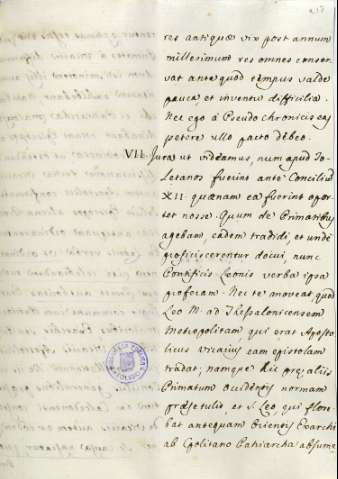 res antiquæ vix post annum
millesimum res omnes conser
vat ante quod tempus valde
pauca et inventu difficilia.
Nec ego à Pseudo chronicis eas
petere ullo pacto debeo.
VII. Jura ut videamus, num apud To-
letanos fuerint ante Conciliũ
XII. quænam ea fuerint opor
tet nosse. Quum de Primatibus
agebam, eadem tradidi, et unde
proficiscerentur docui, nunc
Pontificis Leonis verba ipsa
proferam. Nec te moveat, quod
Leo M. ad Thessalonicensem
Metropolitam qui erat Aposto
licus vicarius eam epistolam
tradat; namque hic
Primatum Occidentis normam
præsetulit, et S. Leo, qui flore
bat antequam Orientis Exarchi
ab Cpolitano Patriarcha absume